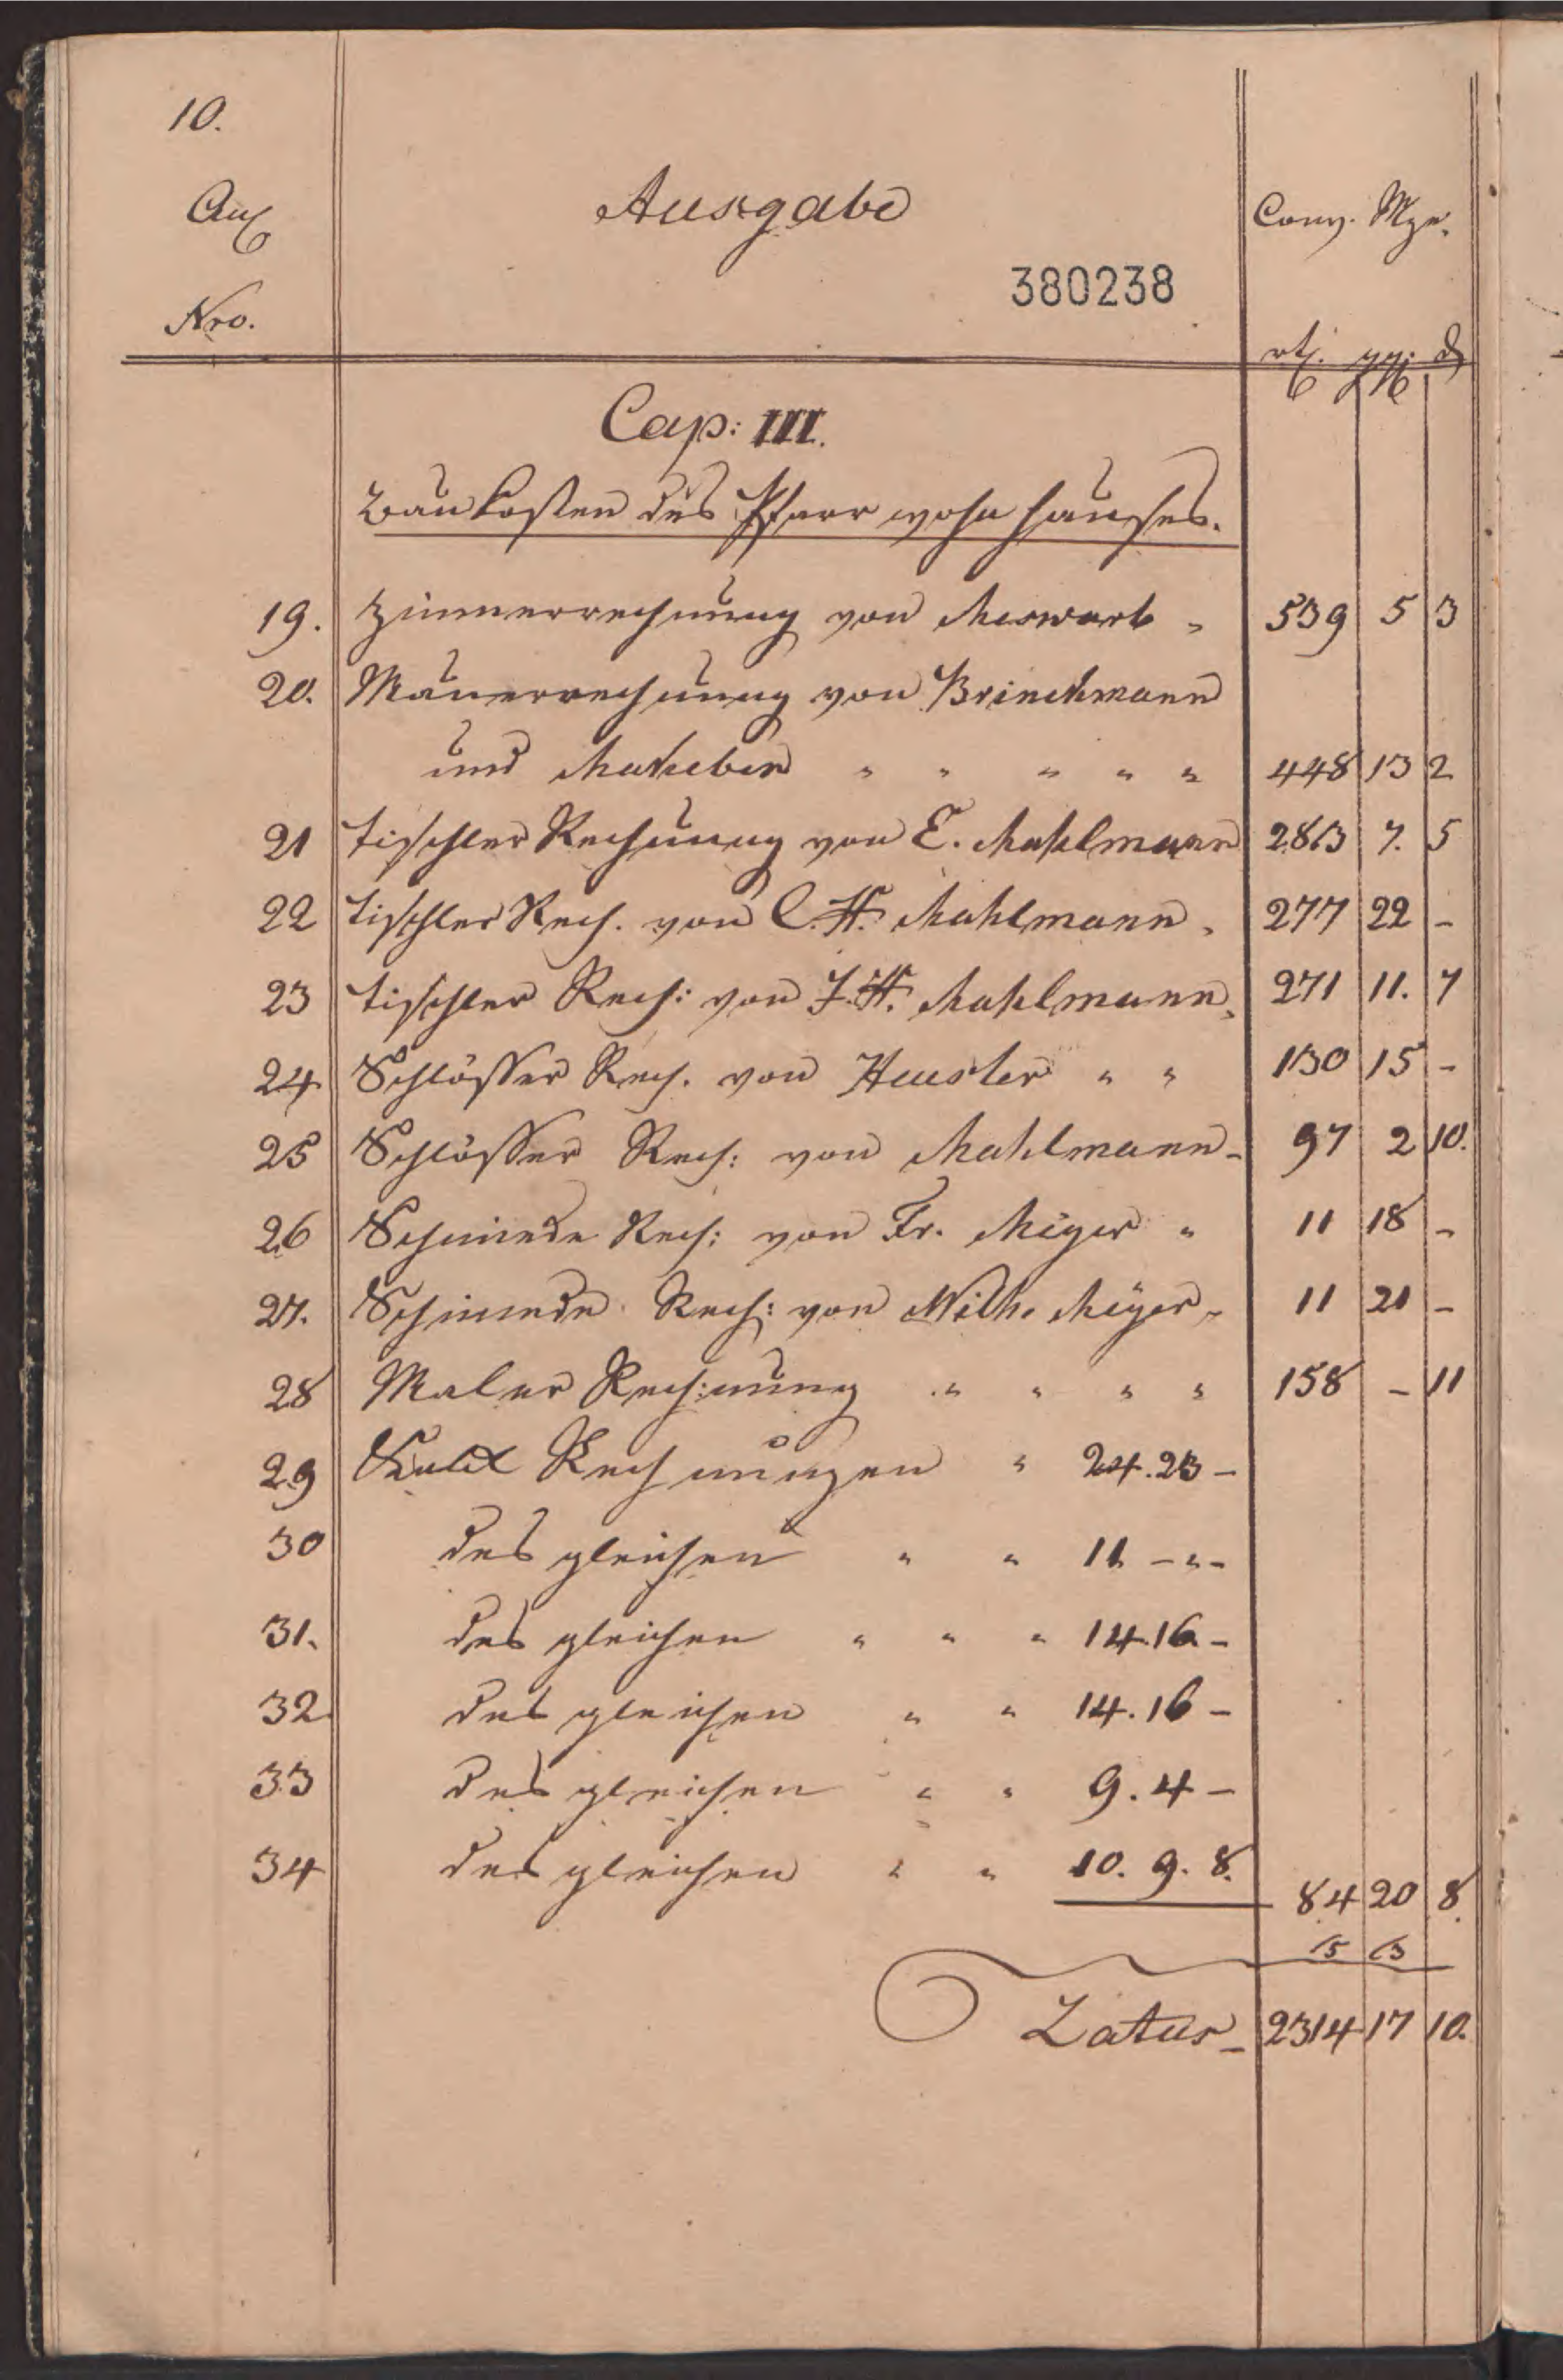 10.
Anl.
Nro.
Ausgabe
Conv. Mze.
380238
rtl. ggl. d
Cap: III.
Baukosten des Pfarrwohnhauses.
19. Zimmerrechnung von Meswarb " 539 5 3
20. Mauerrechnung von Brinckmann
und " " " " " 448 13 2
21 Tischler Rechnung von E. Mahlmann 283 7. 5
22 Tischler Rech. von C. H. Mahlmann " 277 22 –
23 Tischler Rech: von J. H. Mahlmann " 271 11. 7
24 Schlösser Rech. von Heusler " " 130 15 –
25 Schlösser Rech: von Mahlmann – 97 2 10.
26 Schmiede Rech: von Fr. Meyer " 11 18 –
27. Schmiede Rech: von Wilh. Meyer " 11 21 –
28 Maler Rechnung " " " " 158 – 11
29 Kalk Rechnungen " 24. 23 –
30 desgleichen " " 11 – " –
31. desgleichen " " " 14. 16. –
32. desgleichen " " 14. 16 –
33 desgleichen " " 9. 4 –
34 desgleichen " " 10. 9. 8.
84 20 8.
15 13
Latus – 2314 17 10.